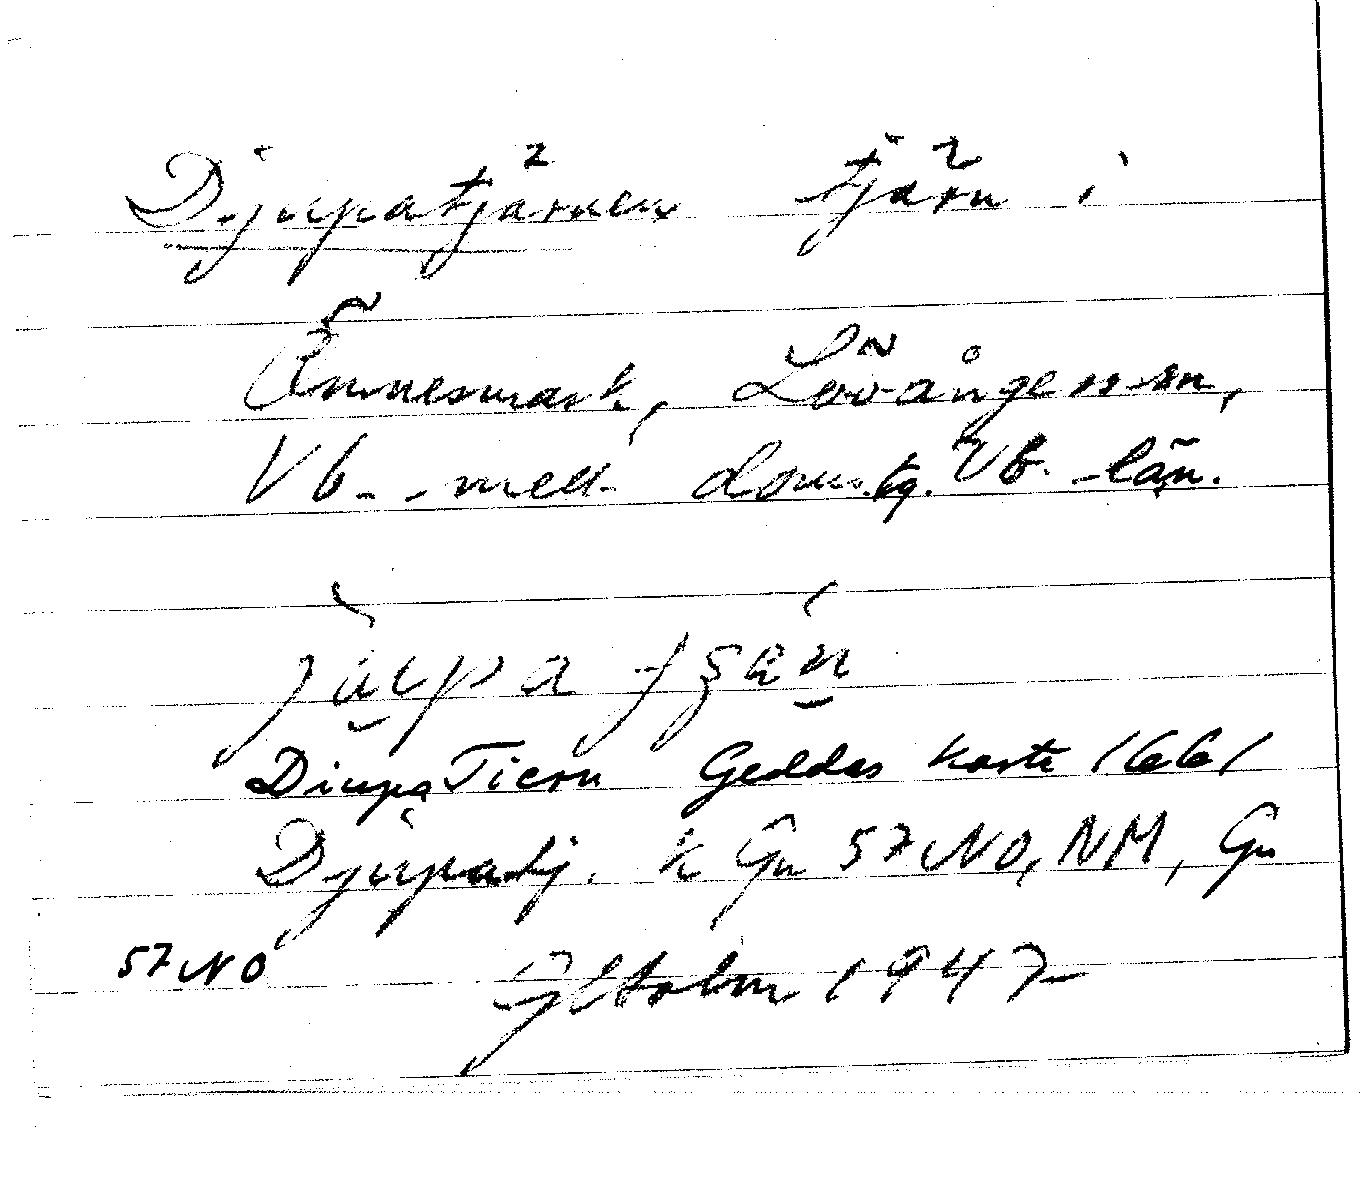 Djupatjärnen tjärn i
Önnesmark, Lövångers sn,
Vb. mell. doms.tg. Vb. län.
DiupaTiern Geddas karta 1661
Djupatj. k Gn 57 NO, NM, Gn
57 NO 1947